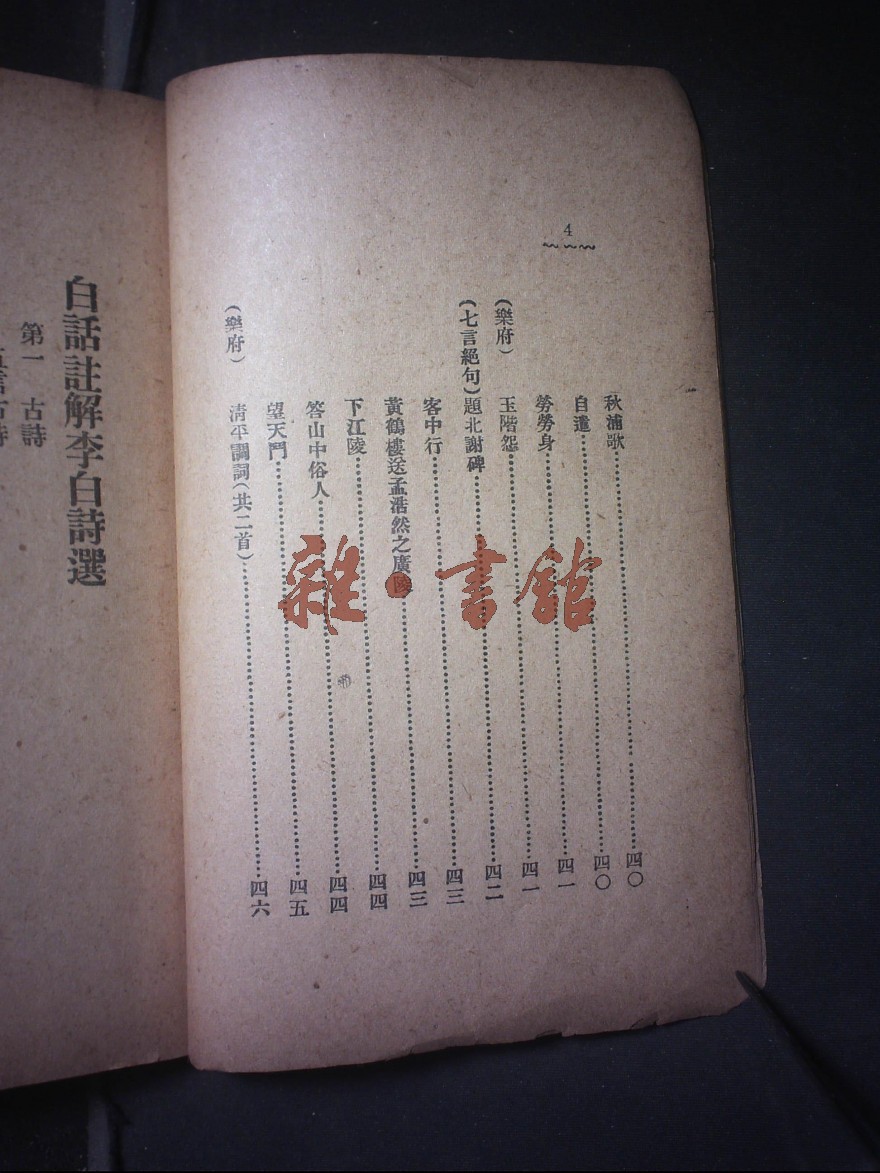 4
秋浦歌……四〇
自遣……四〇
勞勞身……四一
(樂府)玉階怨……四一
(七言絕句)題北謝碑……四二
客中行……四三
黃鶴樓送孟浩然之廣陵……四三
下江陵……四四
答山中俗人……四四
望天門……四五
(樂府)清平調詞(共二首)……四六
白話註解李白詩選
第一 古詩
言古詩
雜·書舘